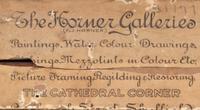 The Horner Galleries
(F.J. HORNER)
Paintings, Water Colour Drawings,
Mezzotints in Colour Etc.
Picture Framing, Regilding & Restoring.
THE CATHEDRAL CORNER
Street, Sheffield